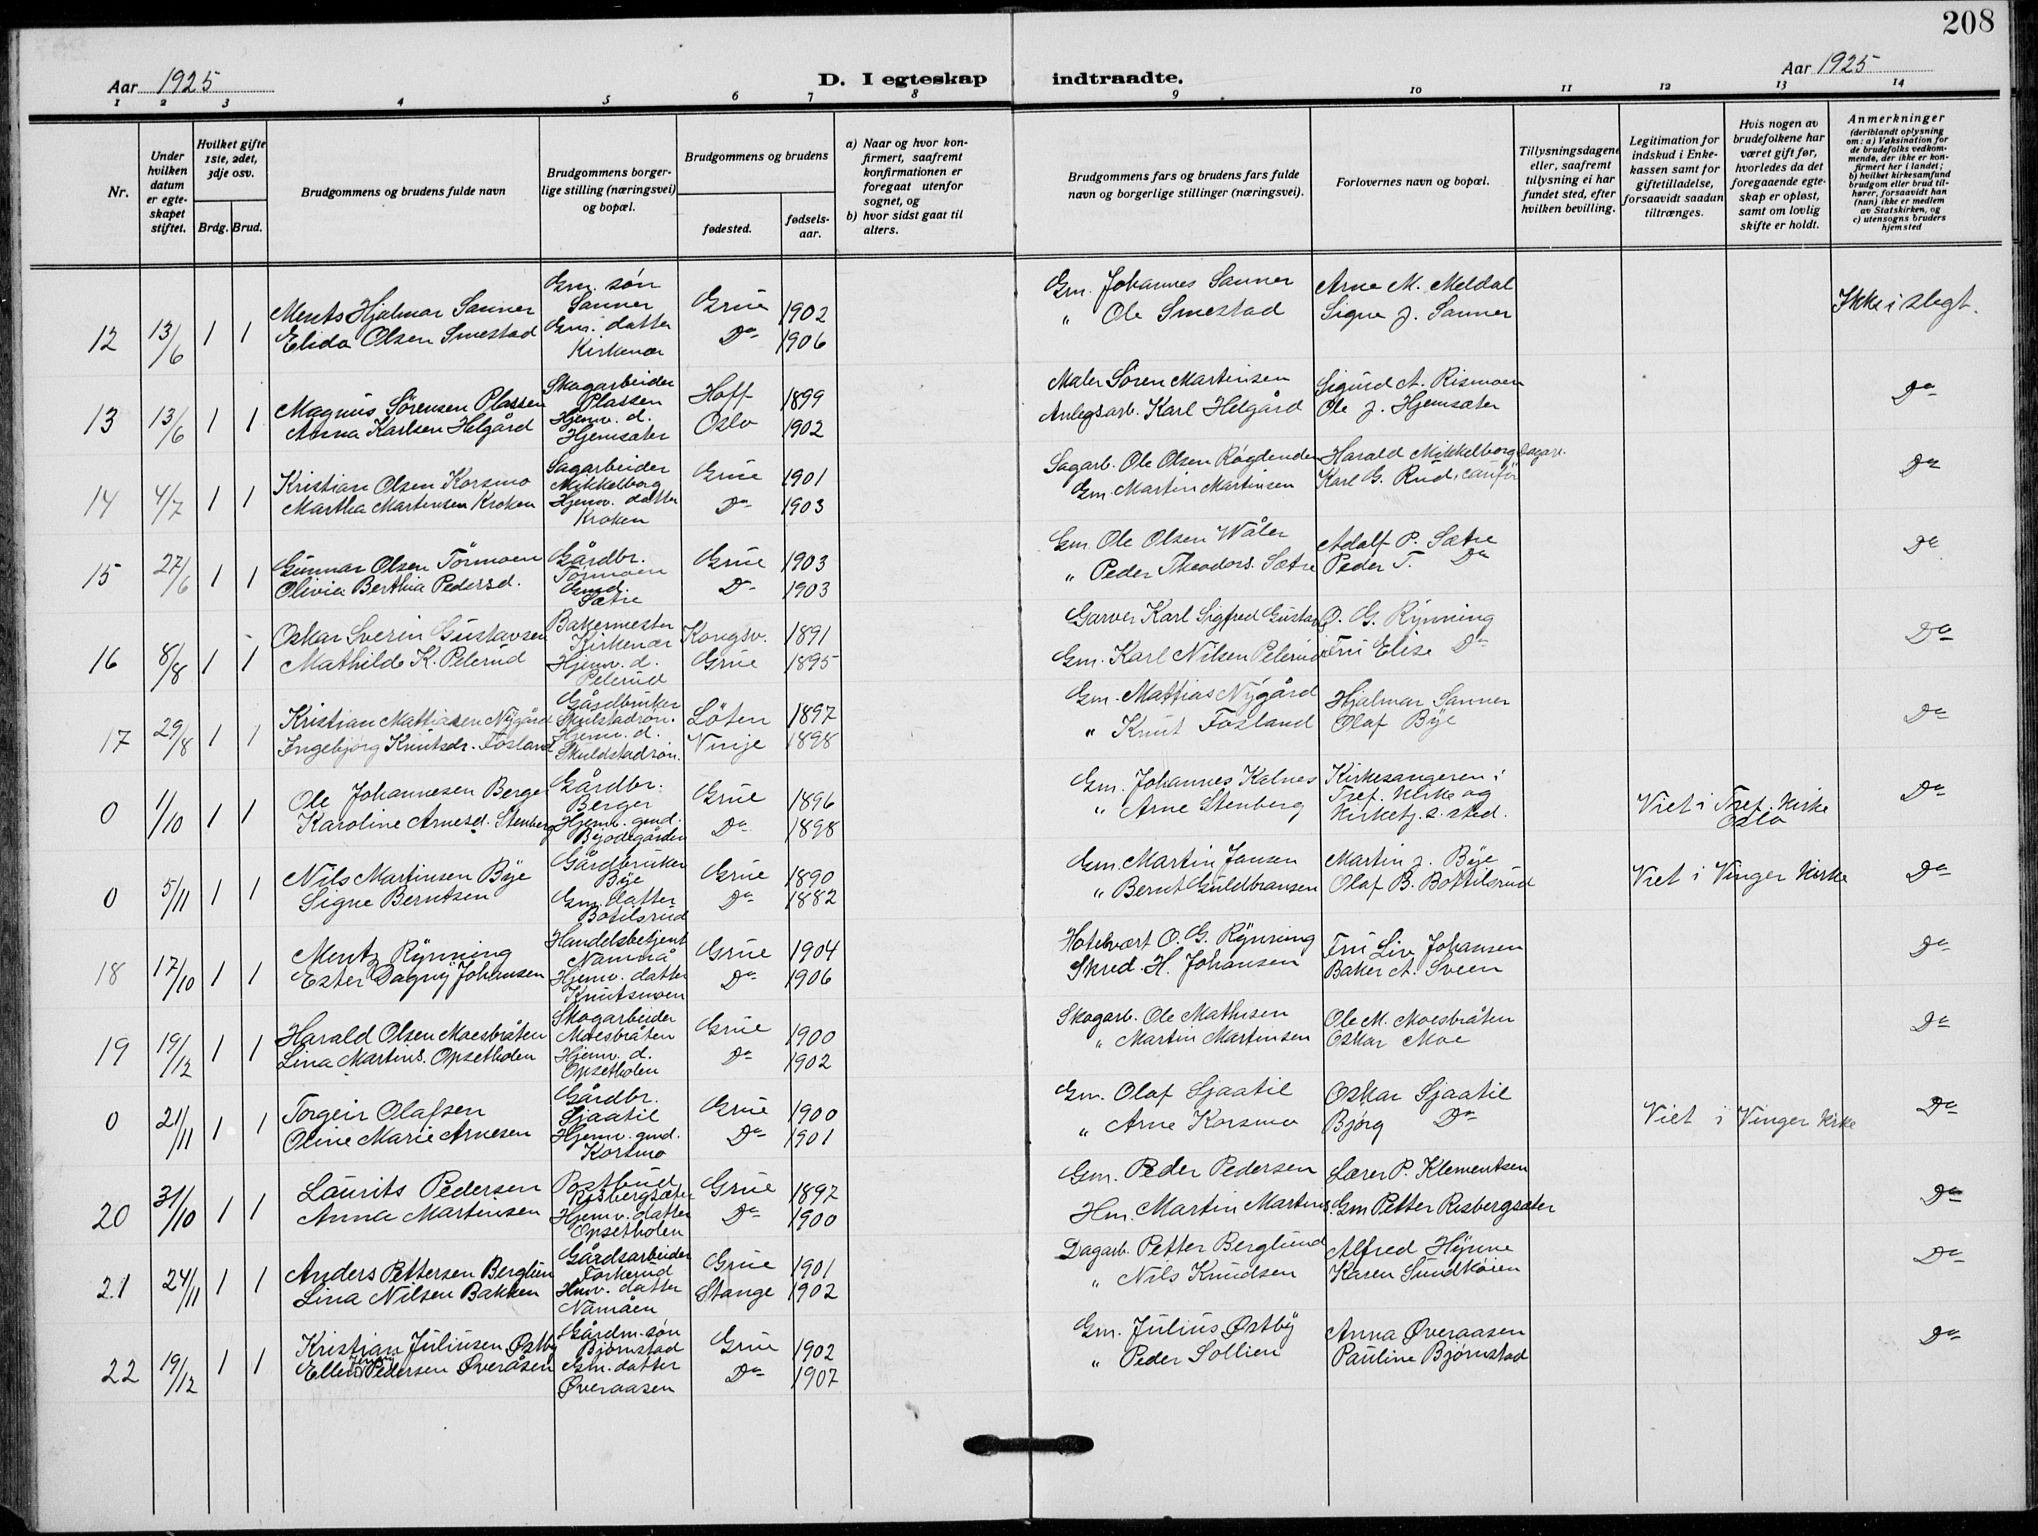 208
Aar 1925
D. I egteskap indtraadte.
Aar 1925
1 2 3 4 5 6 7 8 9 10 11 12 13 14
Nr.
Under hvilken datum er egteskapet stiftet.
Hvilket gifte 1ste, 2det, 3dje osv.
Brdg. Brud.
Brudgommens og brudens fulde navn
Brudgommens borgerlige stilling (næringsvei) og bopæl.
Brudgommens og brudens
fødested.
fødselsaar.
a) Naar og hvor konfirmert, saafremt konfirmationen er foregaat utenfor sognet, og
b) hvor sidst gaat til alters.
Brudgommens fars og brudens fars fulde navn og borgerlige stillinger (næringsvei).
Forlovernes navn og bopæl.
Tillysningsdagene eller, saafremt tillysning ei har fundet sted, efter hvilken bevilling.
Legitimation for indskud i Enkekassen samt for giftetilladelse, forsaavidt saadan tiltrænges.
Hvis nogen av brudefolkene har været gift før, hvorledes da det foregaaende egteskap er opløst, samt om lovlig skifte er holdt.
Anmerkninger
(deriblandt oplysning om: a) Vaksination for de brudefolks vedkommende, der ikke er konfirmert her i landet; b) hvilket kirkesamfund brudgom eller brud tilhører, forsaavidt han (hun) ikke er medlem av Statskirken, og c) utensogns bruders hjemsted
12 13/6 1 1 Ments Hjalmar Sanner Gm. søn Sanner Grue 1902 Gm. Johannes Sanner Arne M. Meldal Ikke i slegt.
Elida Olsen Smestad Gm. datter Kirkenær Do 1906 " Ole Smestad Signe J. Sanner
13 13/6 1 1 Magnus Sørensen Plassen Skogarbeider Plassen Hoff 1899 Maler Søren Martinsen Sigurd A. Rismoen Do
Anna Karlsen Helgård Hjemv. d. Hjemsæter Oslo 1902 Anlegsarb. Karl Helgård Ole J. Hjemsæter
14 4/7 1 1 Kristian Olsen Korsmo Sagarbeider Mikkelborg Grue 1901 Sagarb. Ole Olsen Røgdenden Harald Mikkelborg Sagarb. Do
Martha Martinsen Kroken Hjemv. datter Kroken Do 1903 Gm. Martin Martinsen Karl G. Rud,
15 27/6 1 1 Gunnar Olsen Tørmoen Gårdbr. Tørmoen Grue 1903 Gm. Ole Olsen Wåler Adolf P. Sætre Do
Olivia Berthia Pedersd. Gmd. Sætre Do 1903 " Peder Theodors. Sætre Peder T. Do
16 8/8 1 1 Oskar Sverin Gustavsen Bakermester Kirkenær Kongsv. 1891 Garver Karl Sigfred Gustavs. O. G. Rynning Do
Mathilde K. Pelerud Hjemv. d. Pelerud Grue 1895 Gm. Karl Nilsen Pelerud Fru Elise Do
17 29/8 1 1 Kristian Mattiasen Nygård Gårdbruker Skulstadrøn. Løten 1897 Gm. Mattias Nygård Hjalmar Sanner Do
Ingebjørg Knutsdr. Fosland Hjemv. d. Skuldstadrøn. Vinje 1898 " Knut Fosland Olaf Bye
0 1/10 1 1 Ole Johannesen Berger Gårdbr. Berger Grue 1896 Gm. Johannes Kalnes Kirkesangeren i Tref. Kirke og Viet i Tref. Kirke Oslo Do
Karoline Arnesd. Stenberg Hjemv. gmd. Do 1898 " Arne Stenberg Kirketj. s. sted.
0 5/11 1 1 Nils Martinsen Bye Gårdbruker Bye Grue 1890 Gm. Martin Jansen Martin J. Bye Viet i Vinger Kirke Do
Signe Berntsen Gm. datter Botilsrud Do 1882 " Bernt Guldbransen Olaf B. Bottilsrud
18 17/10 1 1 Mentz Rynning Handelsbetjent Namnå Grue 1904 Hotelvært O. G. Rynning Fru Liv Johansen Do
Ester Dagny Johansen Hjemv. datter Knutsmoen Do 1906 Skred. H. Johansen Baker A. Sveen
19 19/12 1 1 Harald Olsen Moesbråten Skogarbeider Moesbråten Grue 1900 Skogarb. Ole Mathisen Ole M. Moesbråten Do
Lina Martins. Opsetholen Hjemv. d. Opsetholen Do 1902 " Martin Martinsen Oskar Moe
0 21/11 1 1 Torgeir Olafsen Gårdbr. Sjaatil Grue 1900 Gm. Olaf Sjaatil Oskar Sjaatil Viet i Vinger Kirke Do
Oline Marie Arnesen Hjemv. gmd. Korsmo Do 1901 " Arne Korsmo Bjørg Do
20 31/10 1 1 Laurits Pedersen Postbud Risbergsæter Grue 1897 Gm. Peder Pedersen Lærer P. Klementsen Do
Anna Martinsen Hjemv. datter Opsetholen Do 1900 Hm. Martin Martins. Gm Petter Risbergsæter
21 24/11 1 1 Anders Pettersen Berglun Gårdsarbeider Torkerud Grue 1901 Dagarb. Petter Berglund Alfred Hynne Do
Lina Nilsen Bakken Hmv. datter Namåen Stange 1902 " Nils Knudsen Karen Sundkøien
22 19/12 1 1 Kristian Juliusen Østby Gårdm. søn Bjørnstad Grue 1902 Gm. Julius Østby Anna Øveraasen Do
Ellen Pedersen Øveråsen Gm. datter Øveraasen Do 1907 " Peder Sollien Pauline Bjørnstad